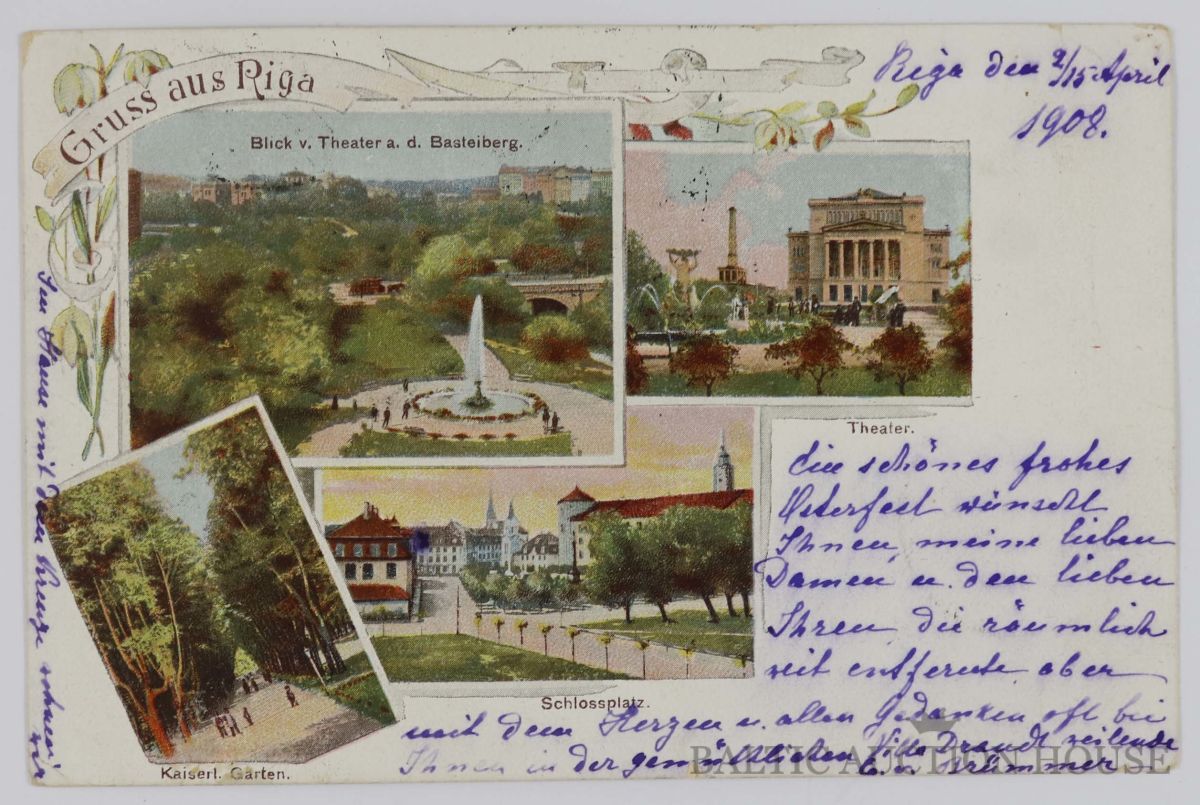 Gruss aus Riga
Riga den 2/15 April
1908.
Blick v. Theater a. d. Basteiberg.
Theater.
Schlossplatz.
Kaiserl. Garten.
Ein schönes frohes
Osterfest wünscht
Ihnen, meine lieben
Damen u. den lieben
Ihren, die räumlich
weit entfernte aber
mit dem Herzen u. allen Gedanken oft bei
Ihnen in der gemütlichen Villa Brandt weilende
E. v. Krümmer
Im Hause mit dem Kreuze wohnen wir
BALTIC AUCTION HOUSE